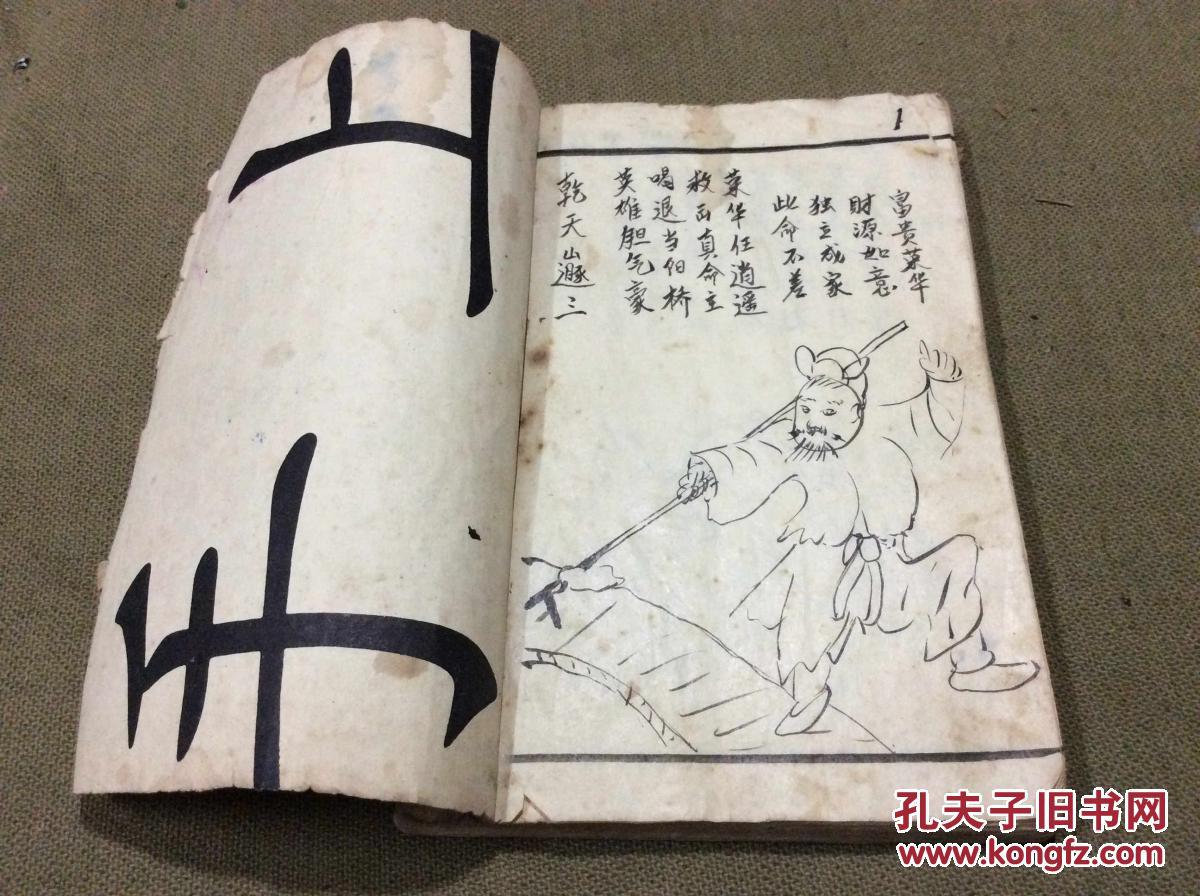 1
富贵荣华
财源如意
独立成家
此命不差
荣华任逍遥
救正真命主
喝退当伯桥
英雄胆气豪
乾天山遯三
孔夫子旧书网
www.kongfz.com